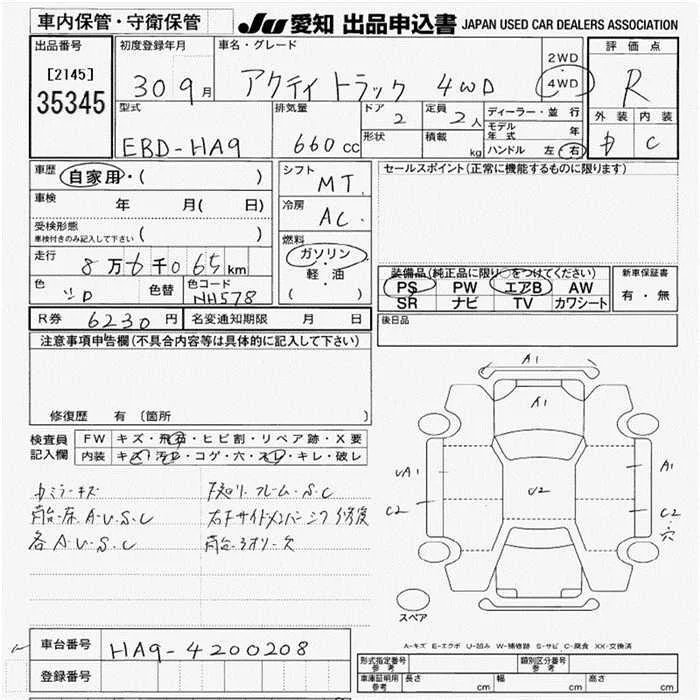 車内保管・守衛保管
JU 愛知 出品申込書 JAPAN USED CAR DEALERS ASSOCIATION
出品番号
[2145]
35345
初度登録年月
30 9月
車名・グレード
アクティ トラック 4WD
2WD
・
4WD
評価点
R
型式
EBD-HA9
排気量
660 cc
ドア
2
定員
2人
形状
積載
kg
ディーラー・並行
モデル年式 年
ハンドル 左 右
外装 内装
C
車歴
自家用・( )
車検
年 月( 日)
受検形態
車検付きのみ記入して下さい ( )
走行
8万6千065km
色
色替
色コード
NH578
シフト
MT
冷房
AC
燃料
ガソリン
・
軽・油
( )
セールスポイント(正常に機能するものに限ります)
装備品(純正品に限り○をつけてください)
PS PW エアB AW
SR ナビ TV カワシート
新車保証書
有・無
R券 6230円 名変通知期限 月 日
後日品
注意事項申告欄(不具合内容等は具体的に記入して下さい)
修復歴 有 〔箇所 〕
検査員記入欄
FW キズ・飛石・ヒビ割・リペア跡・X要
内装 キズ・汚レ・コゲ・穴・スレ・キレ・破レ
カミラーキズ
下廻り、フレーム・S.C
荷台・床 A・U・S・C
右下サイドメンバーシワ 修復
各A・U・S・C
荷台・ヨオリ一欠
A1
A1
UA1
C2
U2
A1
C2
穴
スペア
A-キズ E-エクボ U-凹み W-補修跡 S-サビ C-腐食 XX-交換済
車台番号
HA9-4200208
登録番号
形式指定番号 参考
類別区分番号 参考
車庫証明用 参考
長さ cm 幅 cm 高さ cm